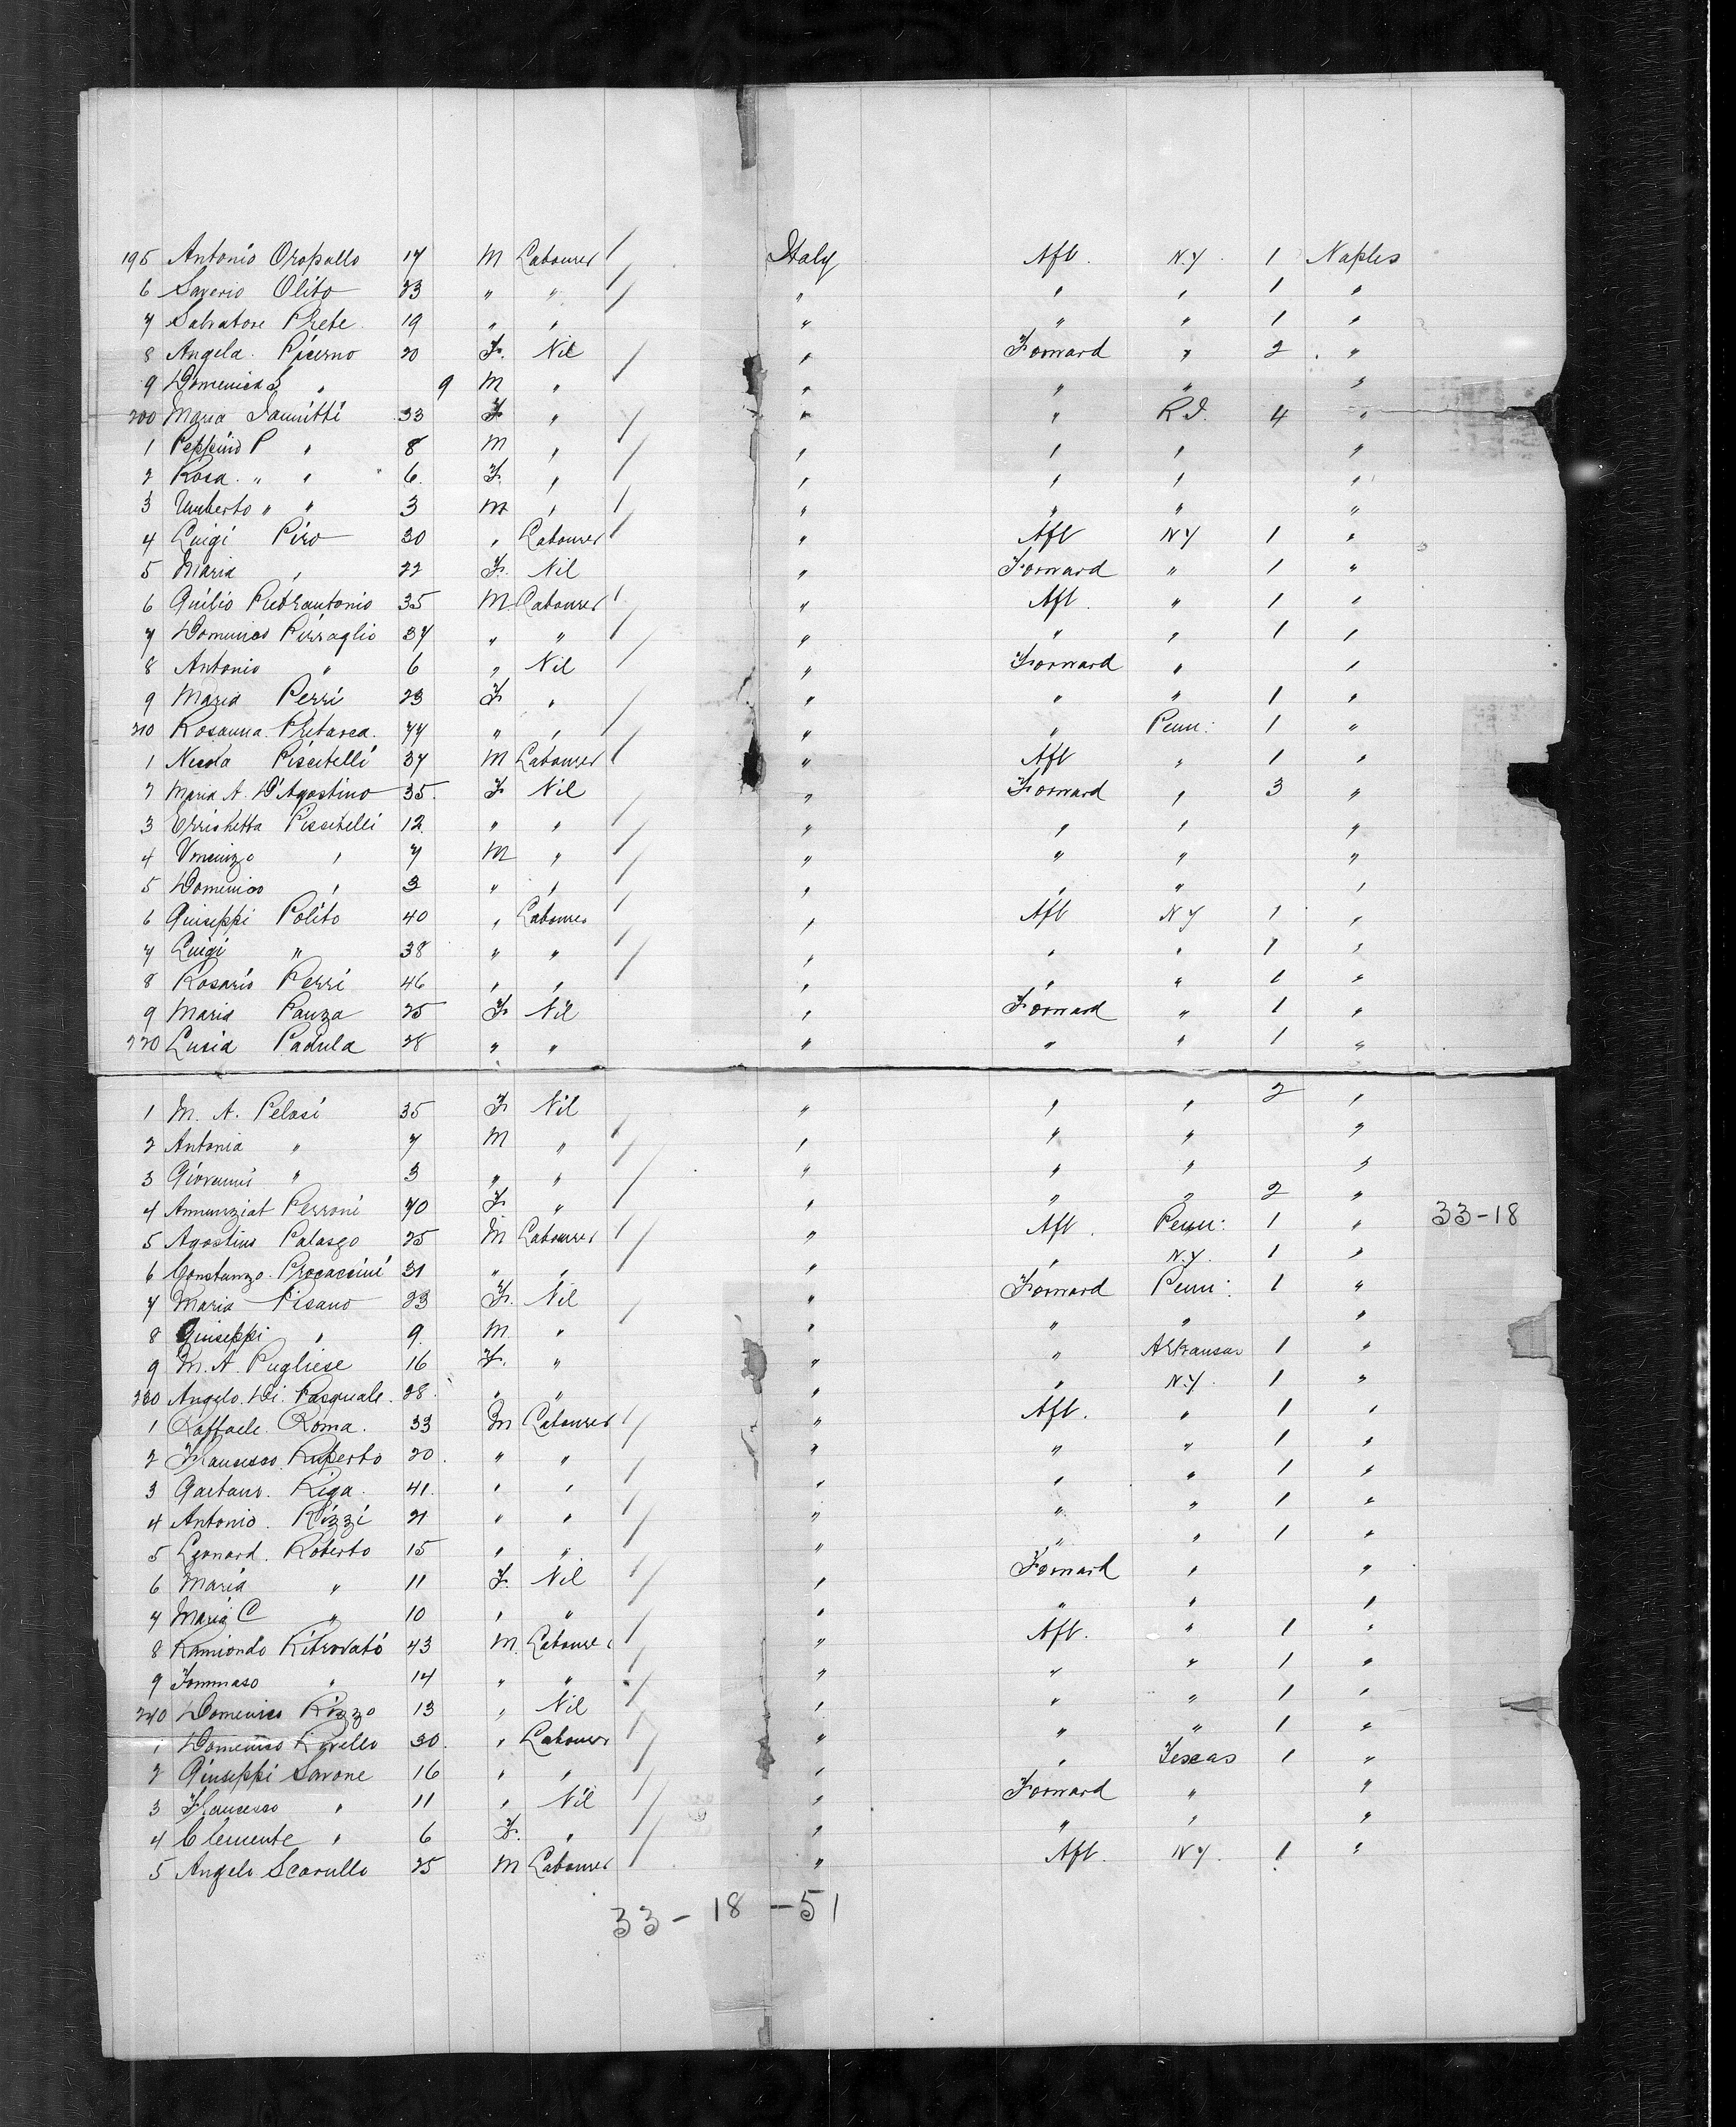 195 Antonio Oropallo 17 M Labourer / Italy Aft. N.Y. 1 Naples
6 Saverio Olito 23 " " / " " " 1 "
7 Salvatore Prete 19 " " " " " 1 "
8 Angela Picerno 20 F. Nil / " Forward " 2 "
9 Domenica S " 9 M " " " " "
200 Maria Iannitti 33 F " / " " R.I. 4 "
1 Peppino P " 8 M " / " " " "
2 Rosa " " 6. F. " / " " " "
3 Umberto " " 3 M " / " " " "
4 Luigi Piro 30 " Labourer / " Aft NY 1 "
5 Maria " 22 F. Nil " Forward " 1 "
6 Guilio Pietrantonio 35 M. Labourer / " Aft. " 1 "
7 Domenico Pirraglio 37 " " / " " " 1 "
8 Antonio " 6 " Nil / " Forward " "
9 Maria Perri 23 F " / " " " 1 "
210 Rosanna Pitarca 44 " " / " " Penn: 1 "
1 Nicola Piscitelli 37 M Labourer / " Aft " 1 "
2 Maria A. D'Agostino 35. F Nil " Forward " 3 "
3 Errichetta Piscitelli 12. " " / " " " "
4 Vincenzo " 7 M " / " " " "
5 Domenico " 3 " " / " " " "
6 Guiseppi Polito 40 " Labourer / " Aft NY 1 "
7 Luigi " 38 " " / " " " 1 "
8 Rosario Perri 46 " " / " " " 1 "
9 Maria Panza 25 F Nil " Forward " 1 "
220 Lucia Padula 28 " " " " " 1 "
1 M. A. Pelasi 35 F Nil " " " 2 "
2 Antonia " 7 M " / " " " "
3 Giovanni " 3 " " / " " " "
4 Annunziat Perroni 40 F " / " " " 2 "
5 Agostino Palasgo 25 M Labourer / " Aft. Penn: 1 " 33-18
6 Constanzo Procaccini 31 " " / " " N.Y. 1 "
7 Maria Pisano 23 F. Nil " Forward Penn: 1 "
8 Guiseppi " 9. M. " / " " " "
9 M. A. Pugliese 16 F. " " " Arkansas 1 "
230 Angelo Di Pasquale 28. " " " " N.Y. 1 "
1 Raffaele Roma. 33 M Labourer / " Aft. " 1 "
2 Francesco Ruperto 20. " " / " " " 1 "
3 Gaetano Riga. 41. " " / " " " 1 "
4 Antonio Rizzi 21 " " / " " " 1 "
5 Leonard Roberto 15 " " / " " " 1 "
6 Maria " 11 F. Nil / " Forward " "
7 Maria C " 10 " " / " " " "
8 Ramiondo Ritrovato 43 M. Labourer / " Aft. " 1 "
9 Tommaso " 14 " " / " " " 1 "
240 Domenico Rizzo 13 " Nil / " " " 1 "
1 Domenico Rovello 30. " Labourer / " " " 1 "
2 Giuseppi Savone 16 " " / " " Texas 1 "
3 Francesco " 11 " Nil / " Forward " "
4 Clemente " 6 F. " / " " " "
5 Angelo Scarullo 25 M Labourer / " Aft. NY. 1 "
33-18-51